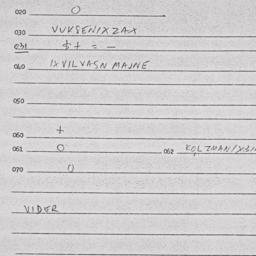 020 O
030 VUKSENIXZAX
031 $+ = -
040 IXVILVASN MAJNE
050
060 +
061 O 062 KOLZMAN/XSI
070 O
VIDER